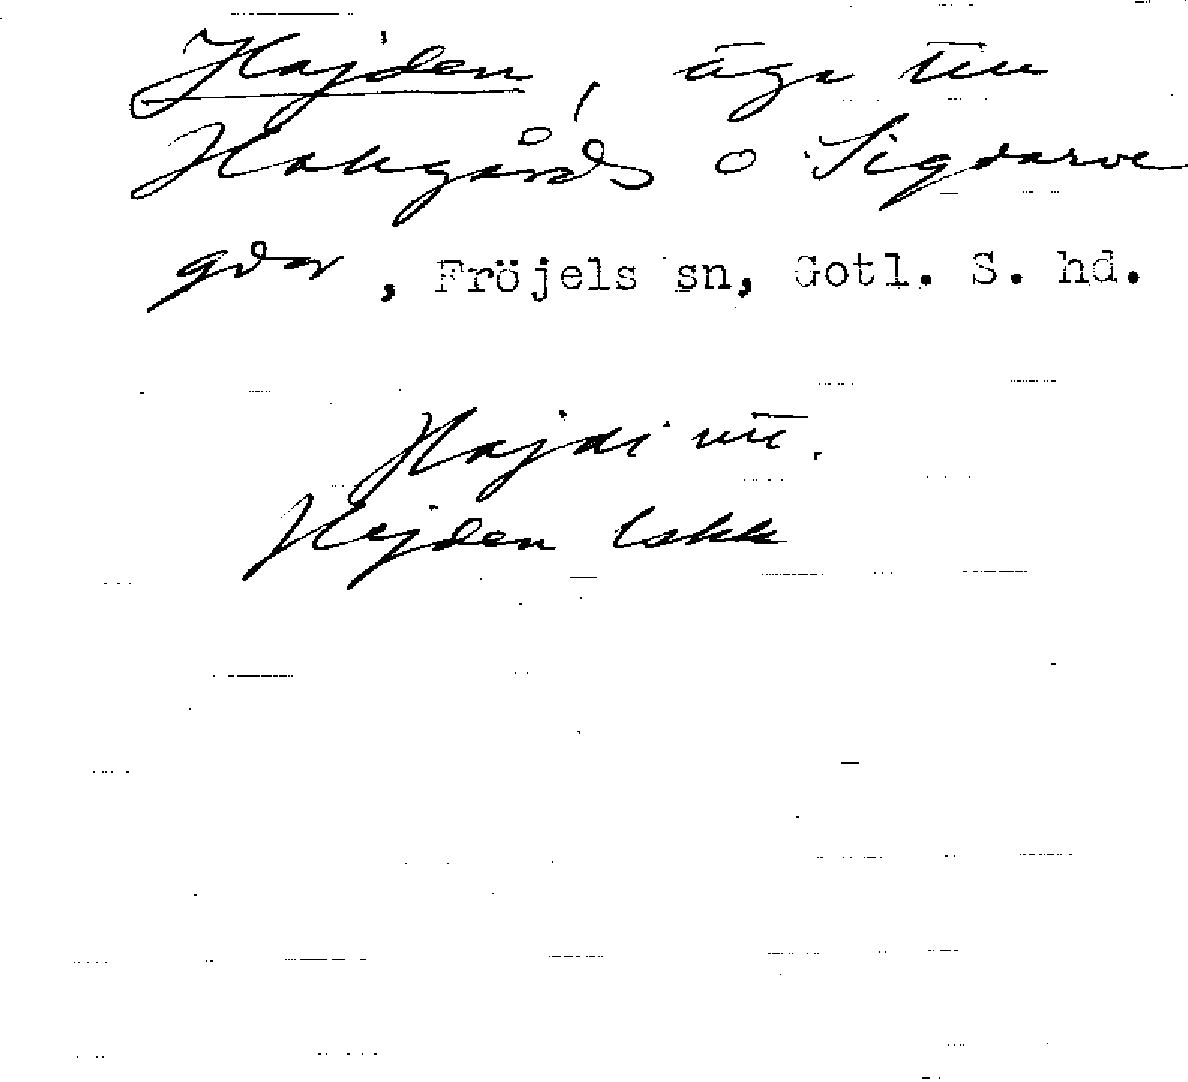 Hajden, äga till
Hakgårds o Sigdarve
gdar, Fröjels sn, Gotl. S. hd.
Hajdi utt.
Hejden lskk